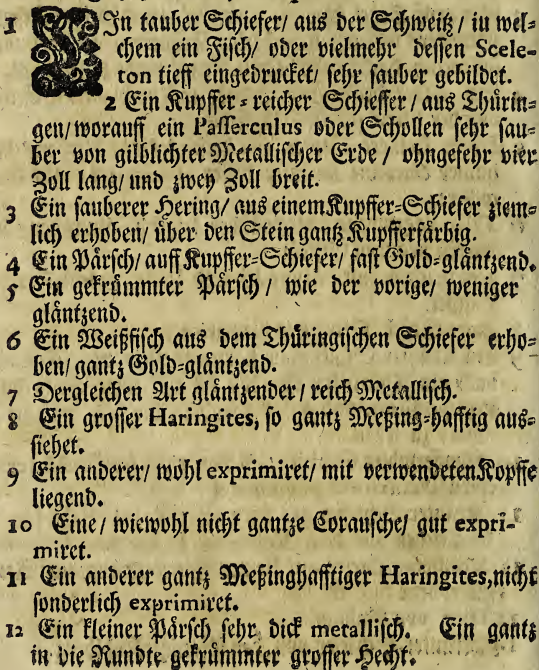 1 EIn tauber Schiefer/ aus der Schweitz/ in wel-
chem ein Fisch/ oder vielmehr dessen Scele-
ton tieff eingedrucket/ sehr sauber gebildet.
2 Ein Kupffer-reicher Schieffer/ aus Thürin-
gen/ worauff ein Passerculus oder Schollen sehr sau-
ber von gilblichter Metallischer Erde/ ohngefehr vier
Zoll lang/ und zwey Zoll breit.
3 Ein sauberer Hering/ aus einem Kupffer-Schiefer ziem-
lich erhoben/ über den Stein gantz Kupfferfärbig.
4 Ein Pärsch/ auff Kupffer-Schiefer/ fast Gold-gläntzend.
5 Ein gekrümmter Pärsch/ wie der vorige/ weniger
gläntzend.
6 Ein Weißfisch aus dem Thüringischen Schiefer erho-
ben/ gantz Gold-gläntzend.
7 Dergleichen Art gläntzender/ reich Metallisch.
8 Ein grosser Haringites, so gantz Meßing-hafftig aus-
siehet.
9 Ein anderer/ wohl exprimiret/ mit verwendeten Kopffe
liegend.
10 Eine/ wiewohl nicht gantze Corausche/ gut expri-
miret.
11 Ein anderer gantz Meßinghafftiger Haringites, nicht
sonderlich exprimiret.
12 Ein kleiner Pärsch sehr dick metallisch. Ein gantz
in die Rundte gekrümmter grosser Hecht.